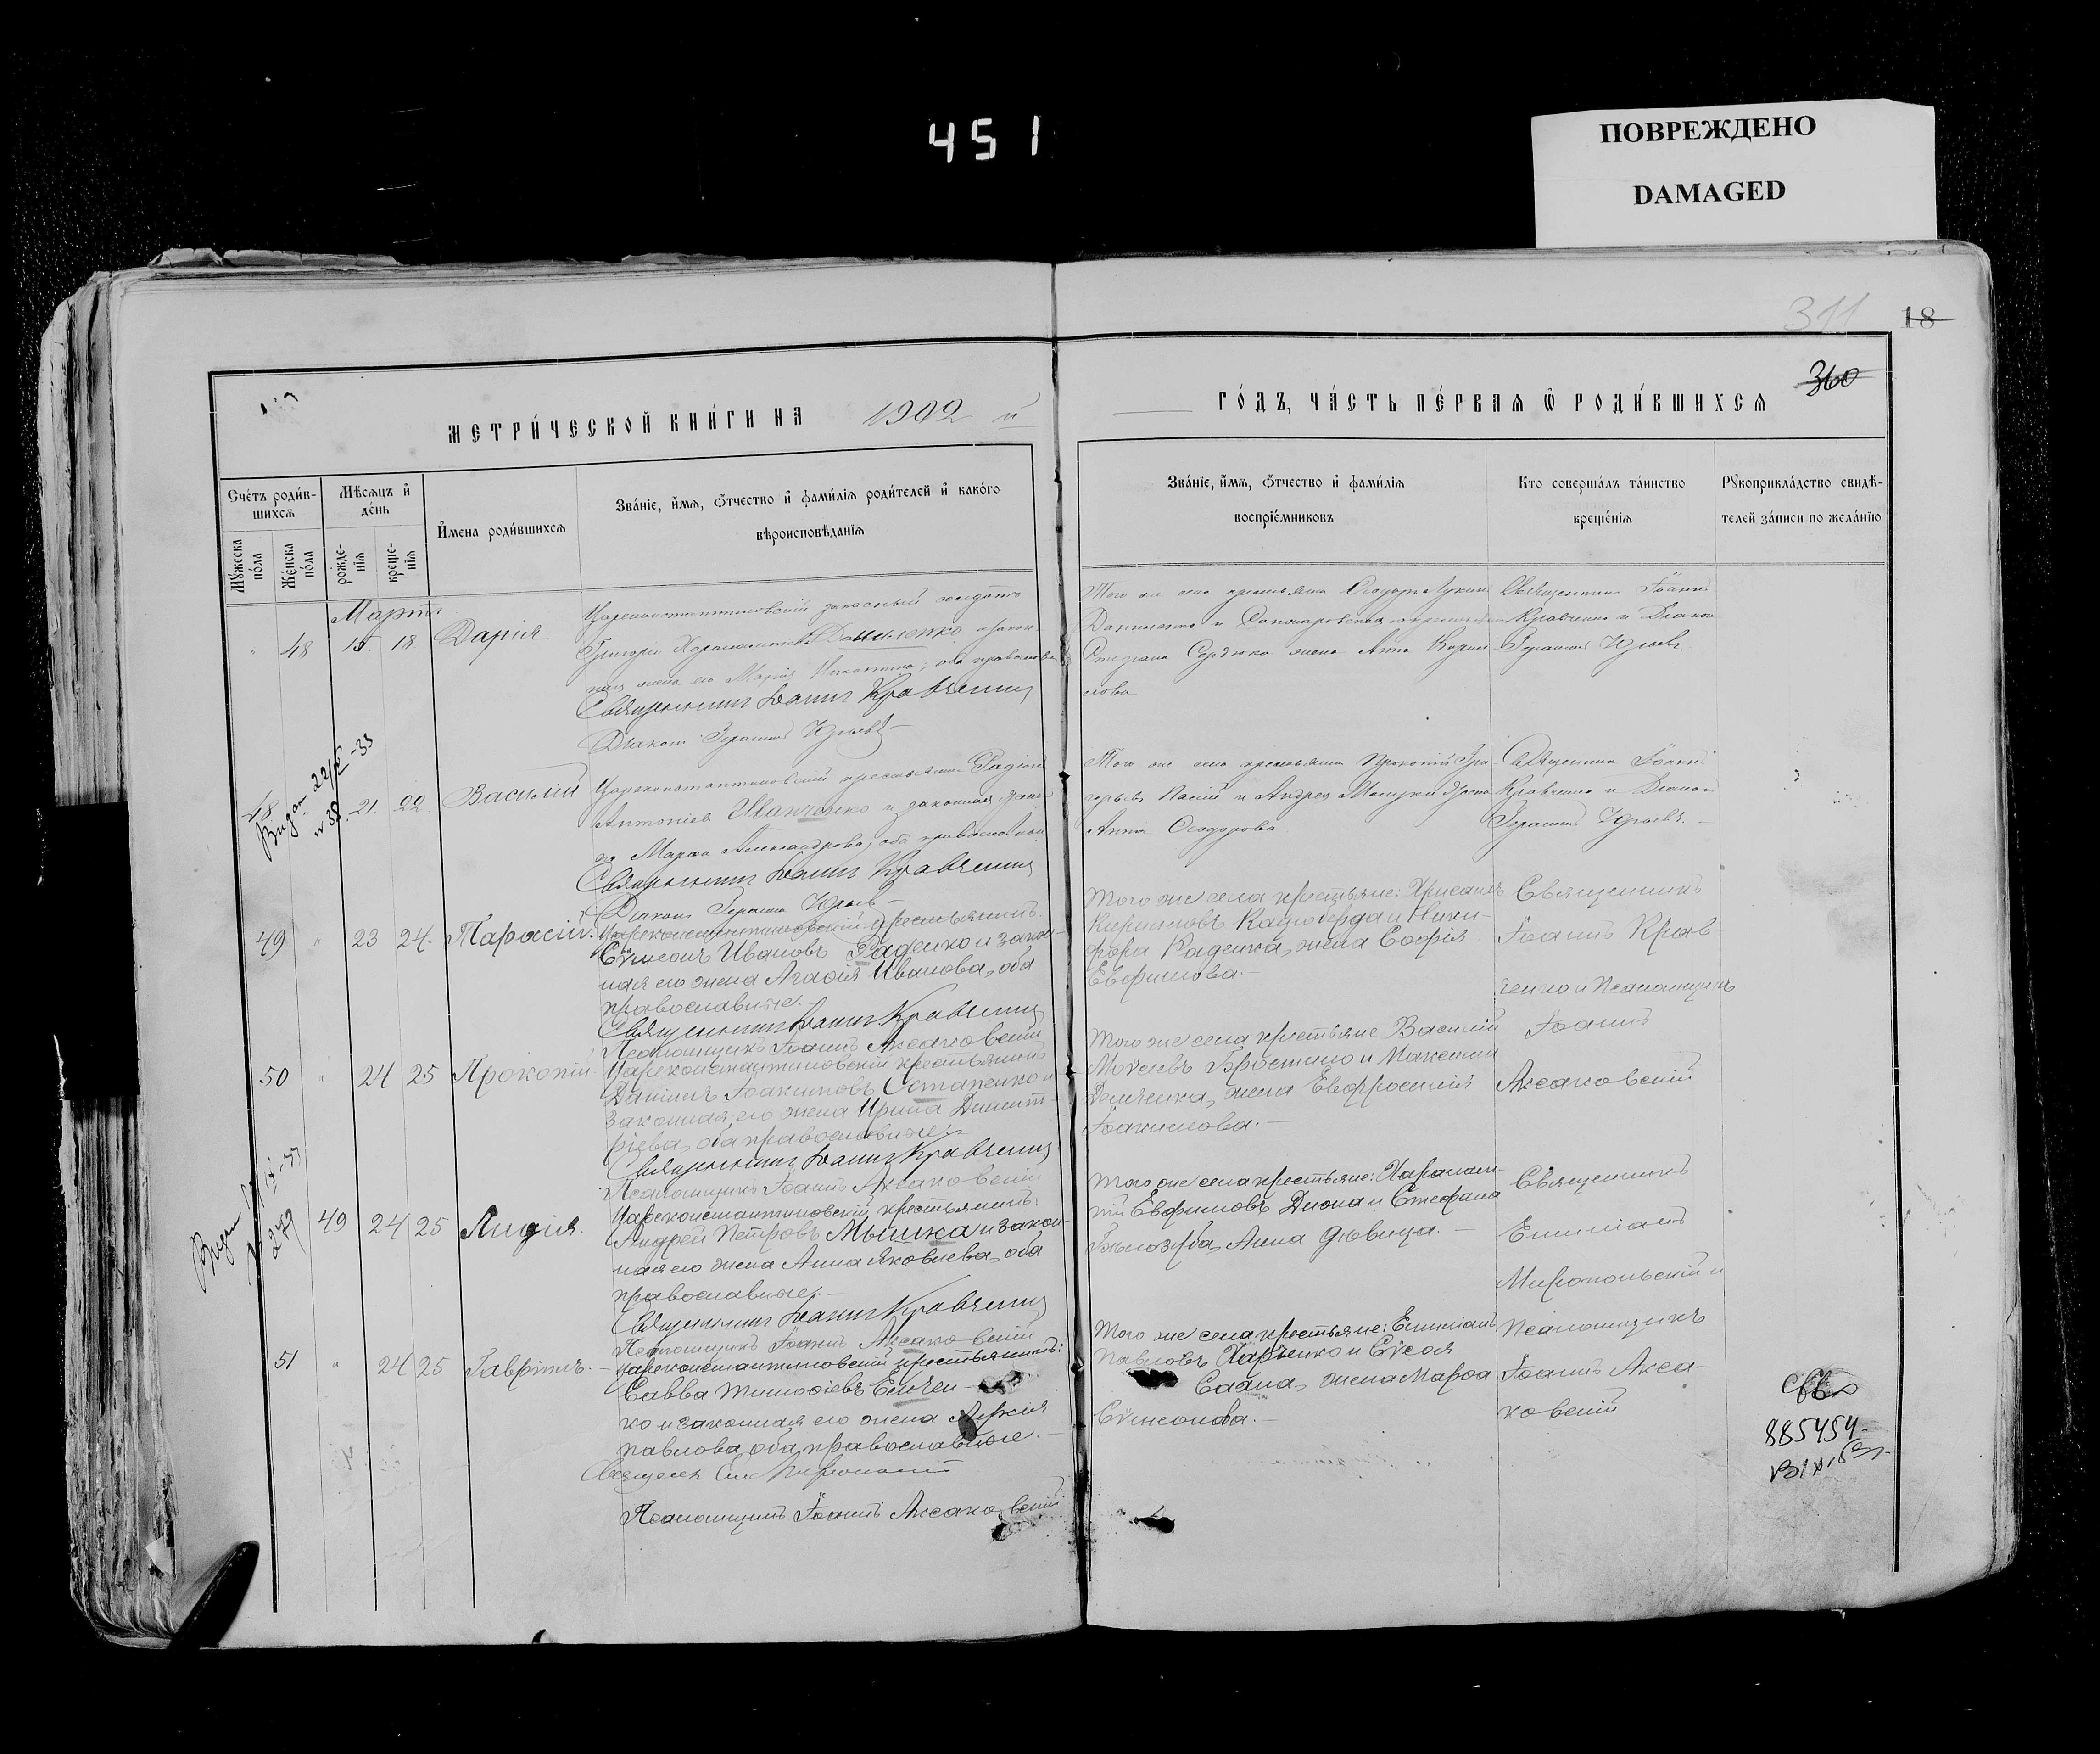 451
ПОВРЕЖДЕНО
DAMAGED
311
18
360
МЕТРИ́ЧЕСКОЙ КНИ́ГИ НА 1902 й
ГО́ДЪ, ЧА́СТЬ ПЕ́РВАѦ Ѿ РОДИ́ВШИХСѦ
Сче́тъ роди́в-
шихсѧ
Мѣ́сѧцъ и҆
де́нь
И҆мена̀ роди́вшихсѧ
Зва́нїе, и҆́мѧ, ѻ҆́тчество и҆ фами́лїѧ роди́телей и҆ како́гѡ
вѣроисповѣ́данїѧ
Мꙋ́жеска
по́ла
Же́нска
по́ла
рожде́-
нїѧ
креще́-
нїѧ
Зва́нїе, и҆́мѧ, ѻ҆́тчество и҆ фами́лїѧ
воспрїе́мниковъ
Кто̀ соверша́лъ та́инство
креще́нїѧ
Рꙋкоприкла́дство свидѣ́-
телей за́писи по жела́нїю
Мартъ
48 15 18 Дарія.
Цареконстантиновскій запасный солдатъ
Григорій Харалампіевъ Даниленко и закон
ная жена его Марія Никитина, оба православ
Священникъ Іоаннъ Кравченко
Діаконъ Герасимъ Юрьевъ
Того же села крестьяне Ѳеодоръ
Даниленко и
Стефана Сердюка жена Анна Кирил
лова
Священникъ Іоаннъ
Кравченко и Діаконъ
Герасимъ Юрьевъ.
48 21. 22 Василій
Видан 22/X-33
№ 38
Цареконстантиновскій крестьянинъ Родіонъ
Антоніевъ Манченко и законная жена
его Марѳа Александрова, оба православные
Священникъ Іоаннъ Кравченко
Діаконъ Герасимъ Юрьевъ
Того же села крестьяне Прокопій Гри
горьевъ Пасій и Андрея жена
Анна Ѳеодорова
Священникъ Іоаннъ
Кравченко и Діаконъ
Герасимъ Юрьевъ.
49 " 23 24. Тарасій.
Цареконстантиновскій крестьянинъ
Сѵмеонъ Ивановъ Раденко и закон-
ная его жена Агаѳія Иванова, оба
православные.
Священникъ Іоаннъ Кравченко
Псаломщикъ Іоаннъ Аксаковскій
Того же села крестьяне: Хрисанѳъ
Кирилловъ Кацюберда и Ники-
фора Раденка, жена Софія
Евфимова.
Священникъ
Іоаннъ Крав-
ченко и Псаломщикъ
Іоаннъ
Аксаковскій
50 " 24 25 Прокопій
Цареконстантиновскій крестьянинъ
Даніилъ Іоакимовъ Остапенко и
законная его жена Ирина Димит-
ріева, оба православные.
Священникъ Іоаннъ Кравченко
Псаломщикъ Іоаннъ Аксаковскій
Того же села крестьяне Василій
Моѵсеевъ и Максима
жена Евфросинія
Іоакимова.
49 24 25 Лидія.
Видан
№ 279
Цареконстантиновскій крестьянинъ:
Андрей Петровъ Мышка и закон-
ная его жена Анна Яковлева, оба
православные.
Священникъ Іоаннъ Кравченко
Псаломщикъ Іоаннъ Аксаковскій
Того же села крестьяне: Харалам-
пій Евфимовъ Дюма и Стефана
Бѣлозуба, Анна дѣвица.
Священникъ
Емиліанъ
Миропольскій и
Псаломщикъ
Іоаннъ Акса-
ковскій
51 " 24 25 Гавріилъ.
Цареконстантиновскій крестьянинъ:
Савва Тимоѳіевъ Емчен-
ко и законная его жена
Павлова, оба православные.
Священ Ем Миропольскій
Псаломщикъ Іоаннъ Аксаковскій
Того же села крестьяне: Емиліанъ
Павловъ Харченко и
Савва, жена Марѳа
Сѵмеонова.
885454